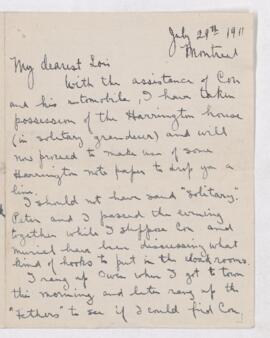 July 29th 1911
Montreal
My dearest Lois
With the assistance of Con
and his automobile, I have taken
possession of the Harrington house
(in solitary grandeur) and will
now proceed to make use of some
Harrington note paper to drop you a
line.
I should not have said "solitary."
Peter and I passed the evening
together while I suppose Con and
Muriel have been discussing what
kind of hooks to put in the cloakrooms.
I rang up Owen when I got to town
this morning and later rang up the
"Tethers" to see if I could find Con,